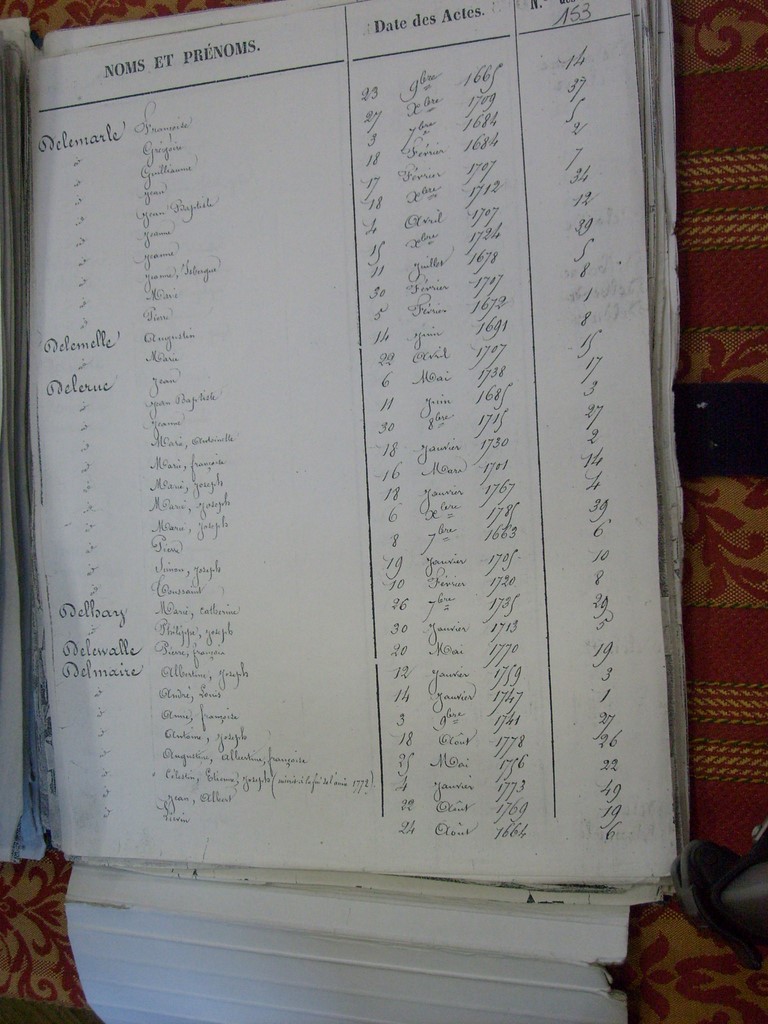 NOMS ET PRÉNOMS. Date des Actes. N.os des
153
Delemarle Françoise 23 9bre 1665 14
d° Grégoire 27 Xbre 1709 37
d° Guilliaume 3 7bre 1684 5
d° Jean 18 Février 1684 2
d° Jean Baptiste 17 Février 1707 7
d° Jeanne 18 Xbre 1712 34
d° Jeanne 4 Avril 1707 12
d° Jeanne, Isbergue 15 Xbre 1724 39
d° Marie 11 Juillet 1678 5
d° Pierre 30 Février 1707 8
Delemelle Augustin 5 Février 1672 1
d° Marie 14 Juin 1691 8
Delerue Jean 22 Avril 1707 15
d° Jean Baptiste 6 Mai 1738 17
d° Jeanne 11 Juin 1685 3
d° Marie, Antoinette 30 8bre 1715 27
d° Marie, françoise 18 Janvier 1730 2
d° Marie, Joseph 16 Mars 1701 14
d° Marie, Joseph 18 Janvier 1767 4
d° Marie, Joseph 6 Xbre 1785 39
d° Pierre 8 7bre 1663 6
d° Simon, Joseph 19 Janvier 1705 10
d° Toussaint 10 Février 1720 8
Delhay Marie, Catherine 26 7bre 1735 29
d° Philippe, Joseph 30 Janvier 1713 5
Delewalle Pierre, françois 20 Mai 1770 19
Delmaire Albertine, Joseph 12 Janvier 1759 3
d° André, Louis 14 Janvier 1747 1
d° Anne, françoise 3 9bre 1741 27
d° Antoine, Joseph 18 Août 1778 26
d° Augustine, Albertine, françoise 25 Mai 1756 22
d° Célestin, Etienne, Joseph (inscrit à la fin de l'année 1772) 4 Janvier 1773 49
d° Jean, Albert 22 Août 1769 19
d° Livin 24 Août 1664 6